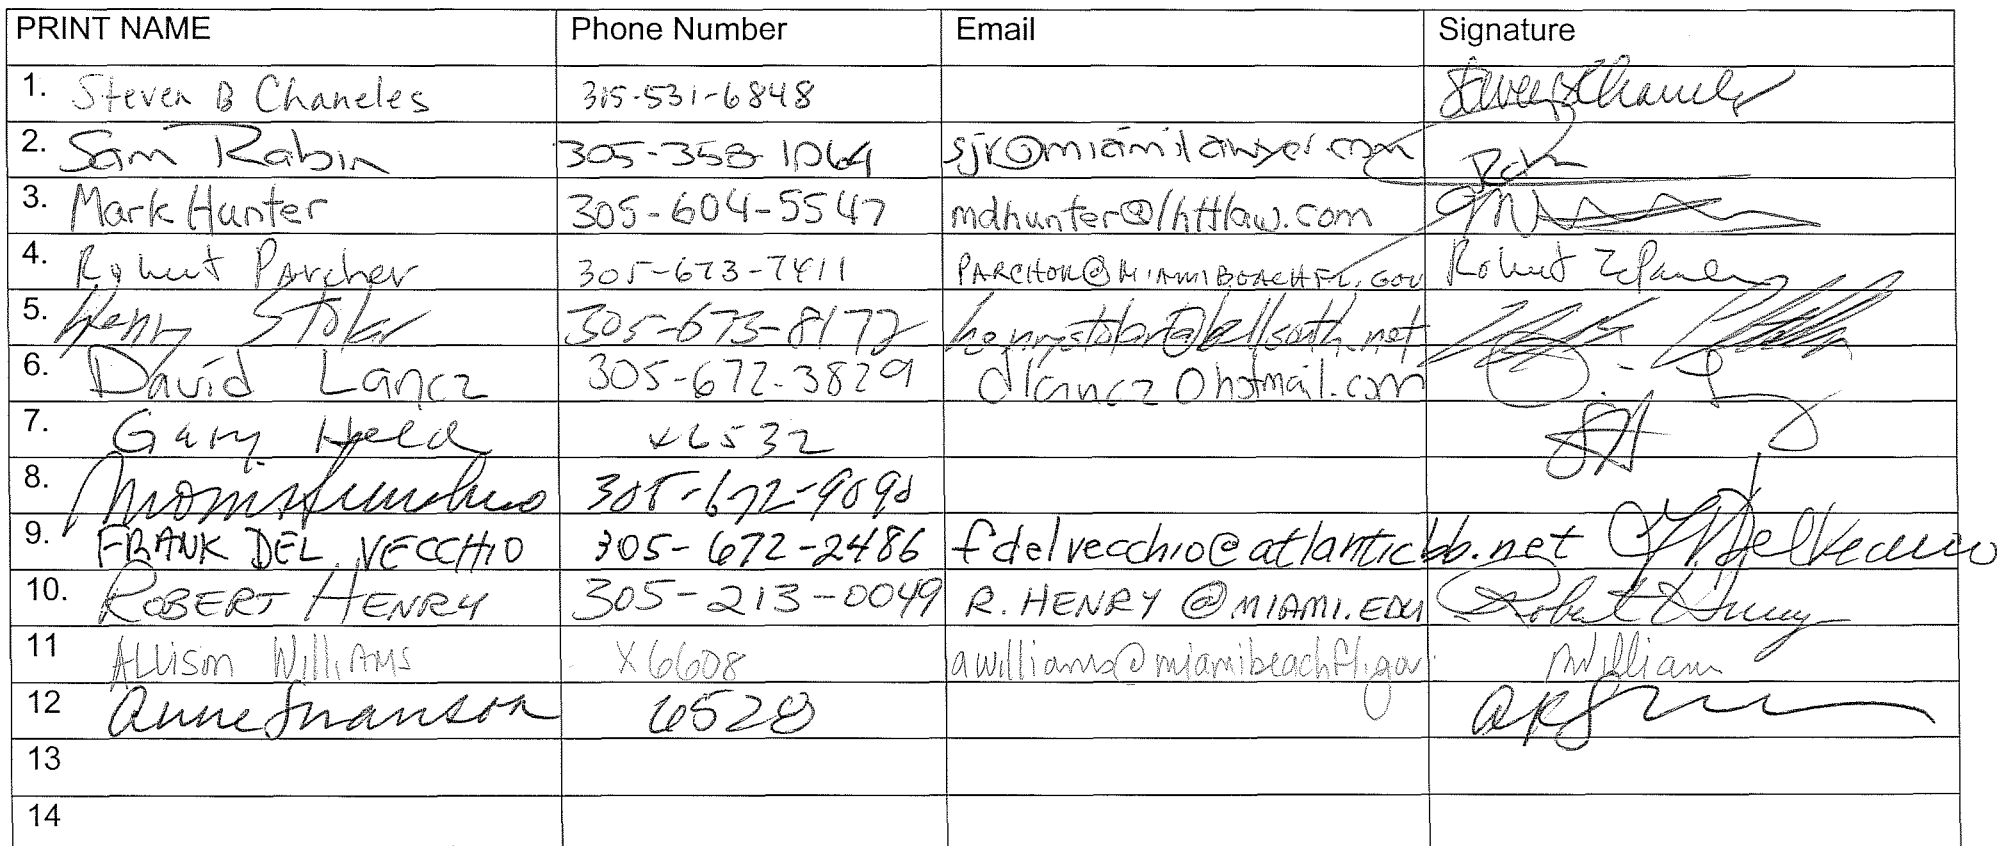 PRINT NAME Phone Number Email Signature
1. Steven B Chaneles 305-531-6848 Steven B Chaneles
2. Sam Rabin 305-358-1064 sjr@miamilawyer.com
3. Mark Hunter 305-604-5547 mdhunter@lhttlaw.com
4. Robert Parcher 305-673-7411 PARCHOR@MIAMIBEACHFL.GOV Robert
5. Henry Stolar 305-673-8172 henrystolar@bellsouth.net
6. David Lancz 305-672-3829 dlancz@hotmail.com
7. Gary Held x6532
8. 305-672-9090
9. FRANK DEL VECCHIO 305-672-2486 fdelvecchio@atlanticbb.net F Del Vecchio
10. ROBERT HENRY 305-213-0049 R.HENRY@MIAMI.EDU Robert Henry
11 Allison Williams X6608 awilliams@miamibeachfl.gov AWilliam
12 Anne Swanson 6528
13
14